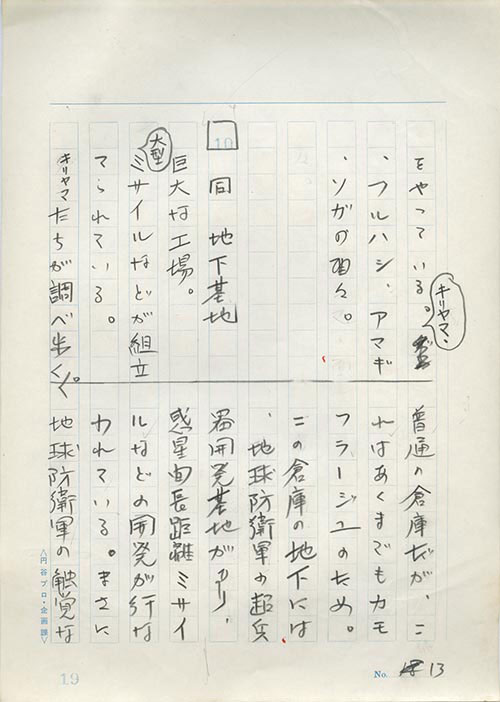 をやっている。キリヤマ、
、フルハシ、アマギ
、ソガの面々。
10 同 地下基地
巨大な工場。
大型ミサイルなどが組立
てられている。
キリヤマたちが調べ歩く。
普通の倉庫だが、こ
れはあくまでもカモ
フラージュのため。
この倉庫の地下には
、地球防衛軍の超兵
器開発基地があり、
惑星間長距離ミサイ
ルなどの開発が行な
われている。まさに
地球防衛軍の触覚な
〈円谷プロ・企画課〉
19
No. 13